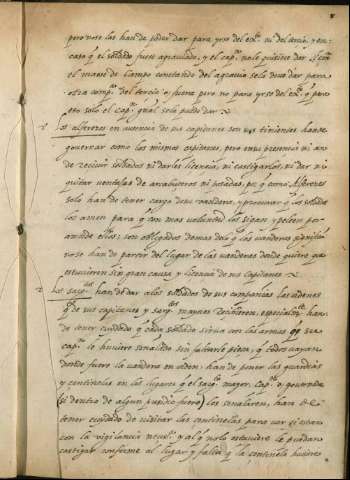 pero no se les han de poder dar para yrse del ex.to ni del tercio, y en
caso q̃ el soldado fuere agraviado, y el cap.n no la quisiere dar
el maese de Campo constando del agravio sela deve dar para
otra comp.a del tercio si fuera pero no para yrse del ex.to q̃
esto solo el cap.n gñal sela puede dar
Los alferezes en ausencia de sus capitanes son sus tinientes han se
governar como los mismos capitanes, pero en su presencia ni an
de recivir soldados ni darles licencia, ni castigarlos, ni dar ni
quitar ventajas de arcabuzeros ni posadas, pq̃ como Alferezes
solo han de tener cargo de su vandera, y procurar q̃ los soldados
los amen para q̃ con mas voluntad los sigan y peleen por
amor de ellos; son obligados demas de lo q̃ las vanderas
no se han de partir del lugar de las vanderas donde quiera que
estuvieren sin gran causa y licencia de sus capitanes
Los sarg.tos han de dar a los soldados de sus compañias las ordenes
q̃ de sus capitanes y sarg.tos mayores recivieren, especialm.te han
de tener cuydado q̃ cada soldado sirva con las armas q̃ su
cap.n le huviere señalado sin faltarle pieça, y q̃ todos vayan
donde fuere la vandera en orden: han de poner las guardias
y centinelas en los lugares q̃ el sarg.to mayor, cap.n o
(si dentro de algun puesto fuere) les señalaren, han de
tener cuydado de visitar las centinelas para ver si estan
con la vigilancia neces.a y al q̃ no lo estuviere le puedan
castigar conforme al lugar y falta q̃ la centinela huviere